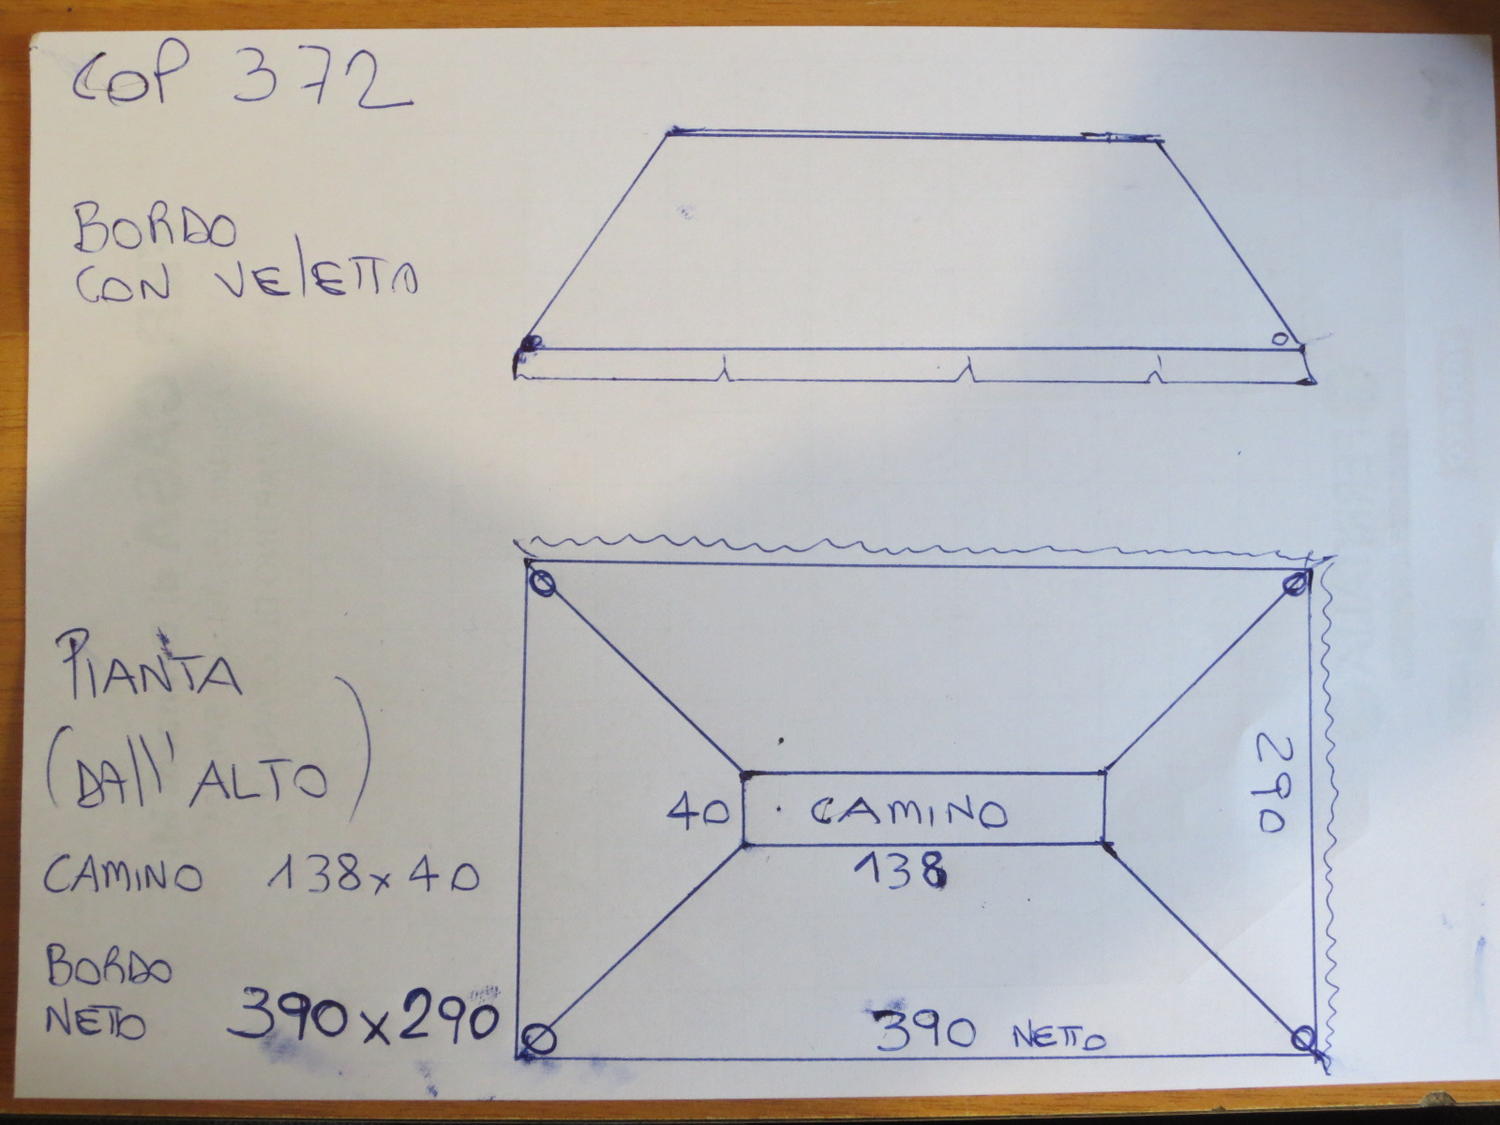 COP 372
BORDO
CON VELETTA
PIANTA
(DALL'ALTO)
CAMINO 138x40
BORDO
NETTO 390x290
40 CAMINO
138
290
390 NETTO